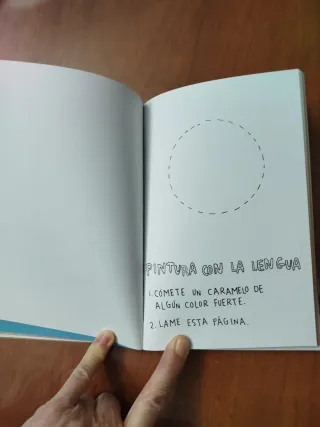 PINTURA CON LA LENGUA
1. CÓMETE UN CARAMELO DE
ALGÚN COLOR FUERTE.
2. LAME ESTA PÁGINA.